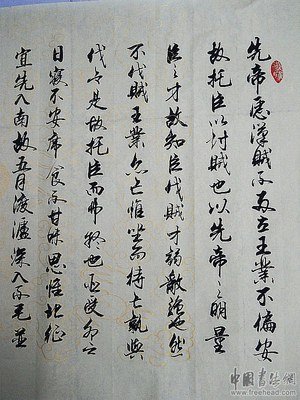 先帝慮漢賊不兩立王業不偏安
故托臣以討賊也以先帝之明量
臣之才故知臣伐賊才弱敵強也然
不伐賊王業亦亡惟坐而待亡孰與
伐之是故托臣而弗疑也臣受命之
日寢不安席食不甘味思惟北征
宜先入南故五月渡瀘深入不毛並
中國書法網
www.freehead.com